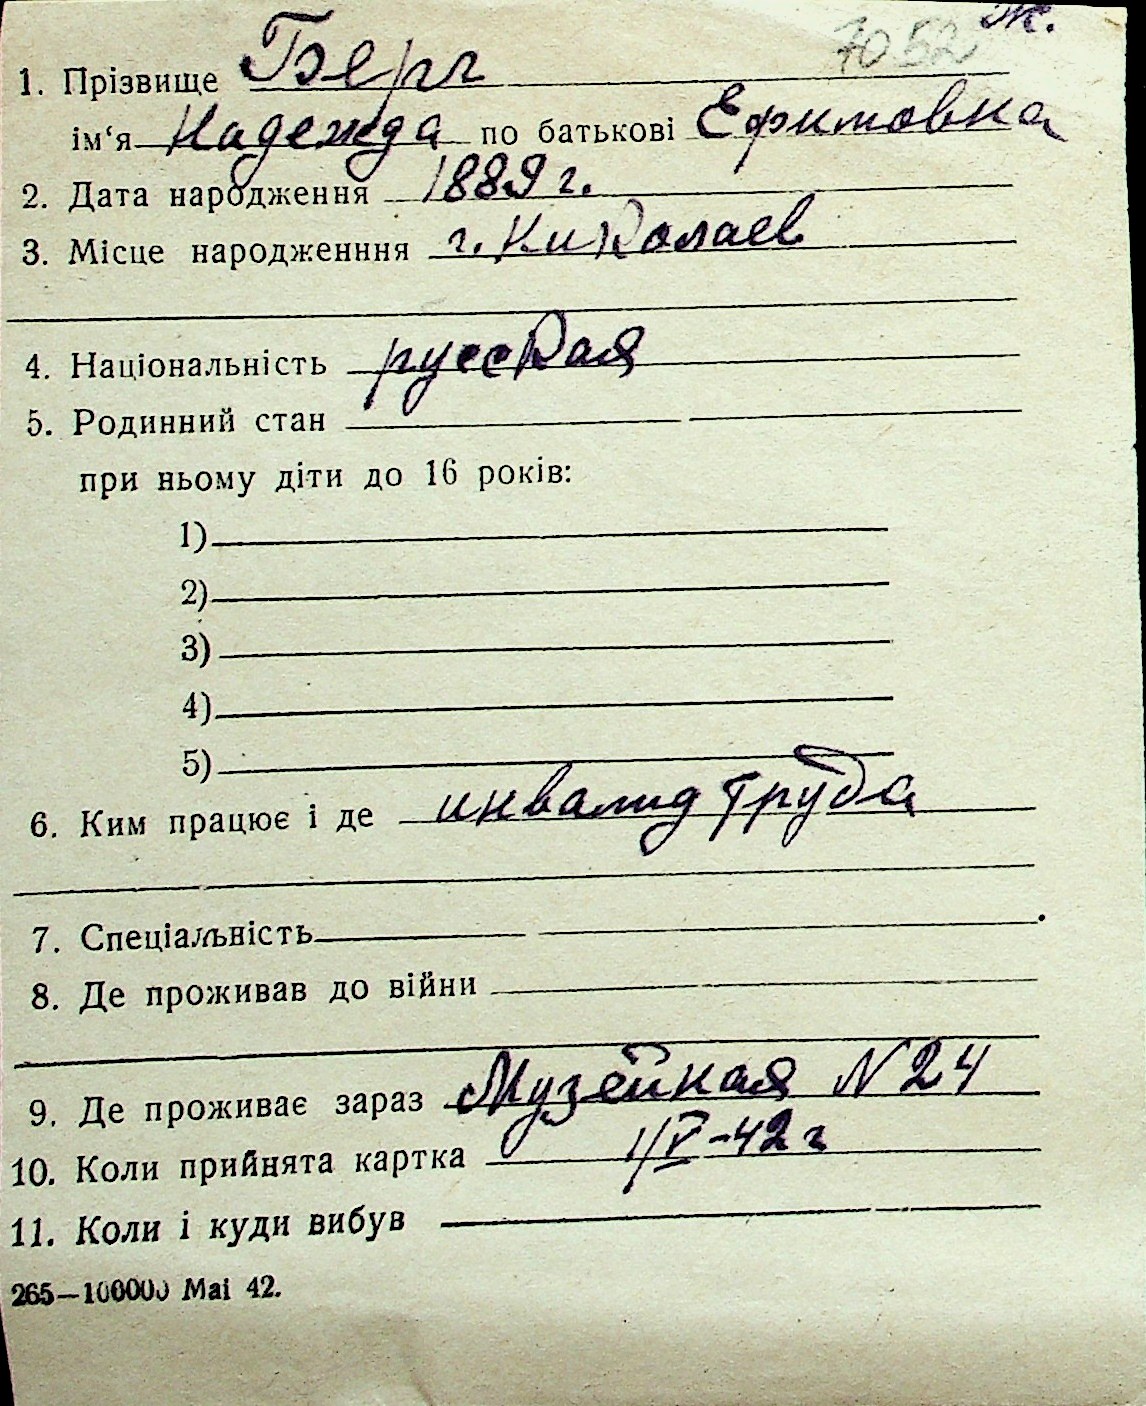 7052 Ж.
1. Прізвище Берг
ім‘я Надежда по батькові Ефимовна
2. Дата народження 1889 г.
3. Місце народженння г. Николаев
4. Національність русская
5. Родинний стан
при ньому діти до 16 років:
1)
2)
3)
4)
5)
6. Ким працює і де инвалид труда
7. Спеціальність
8. Де проживав до війни
9. Де проживає зараз Музейная N 24
10. Коли прийнята картка 1/V-42 г
11. Коли і куди вибув
265—100000 Mai 42.